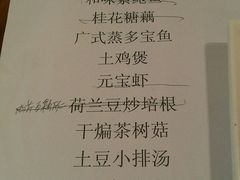 和味紫鲍鱼
桂花糖藕
广式蒸多宝鱼
土鸡煲
元宝虾
荷兰豆炒培根
干煸茶树菇
土豆小排汤